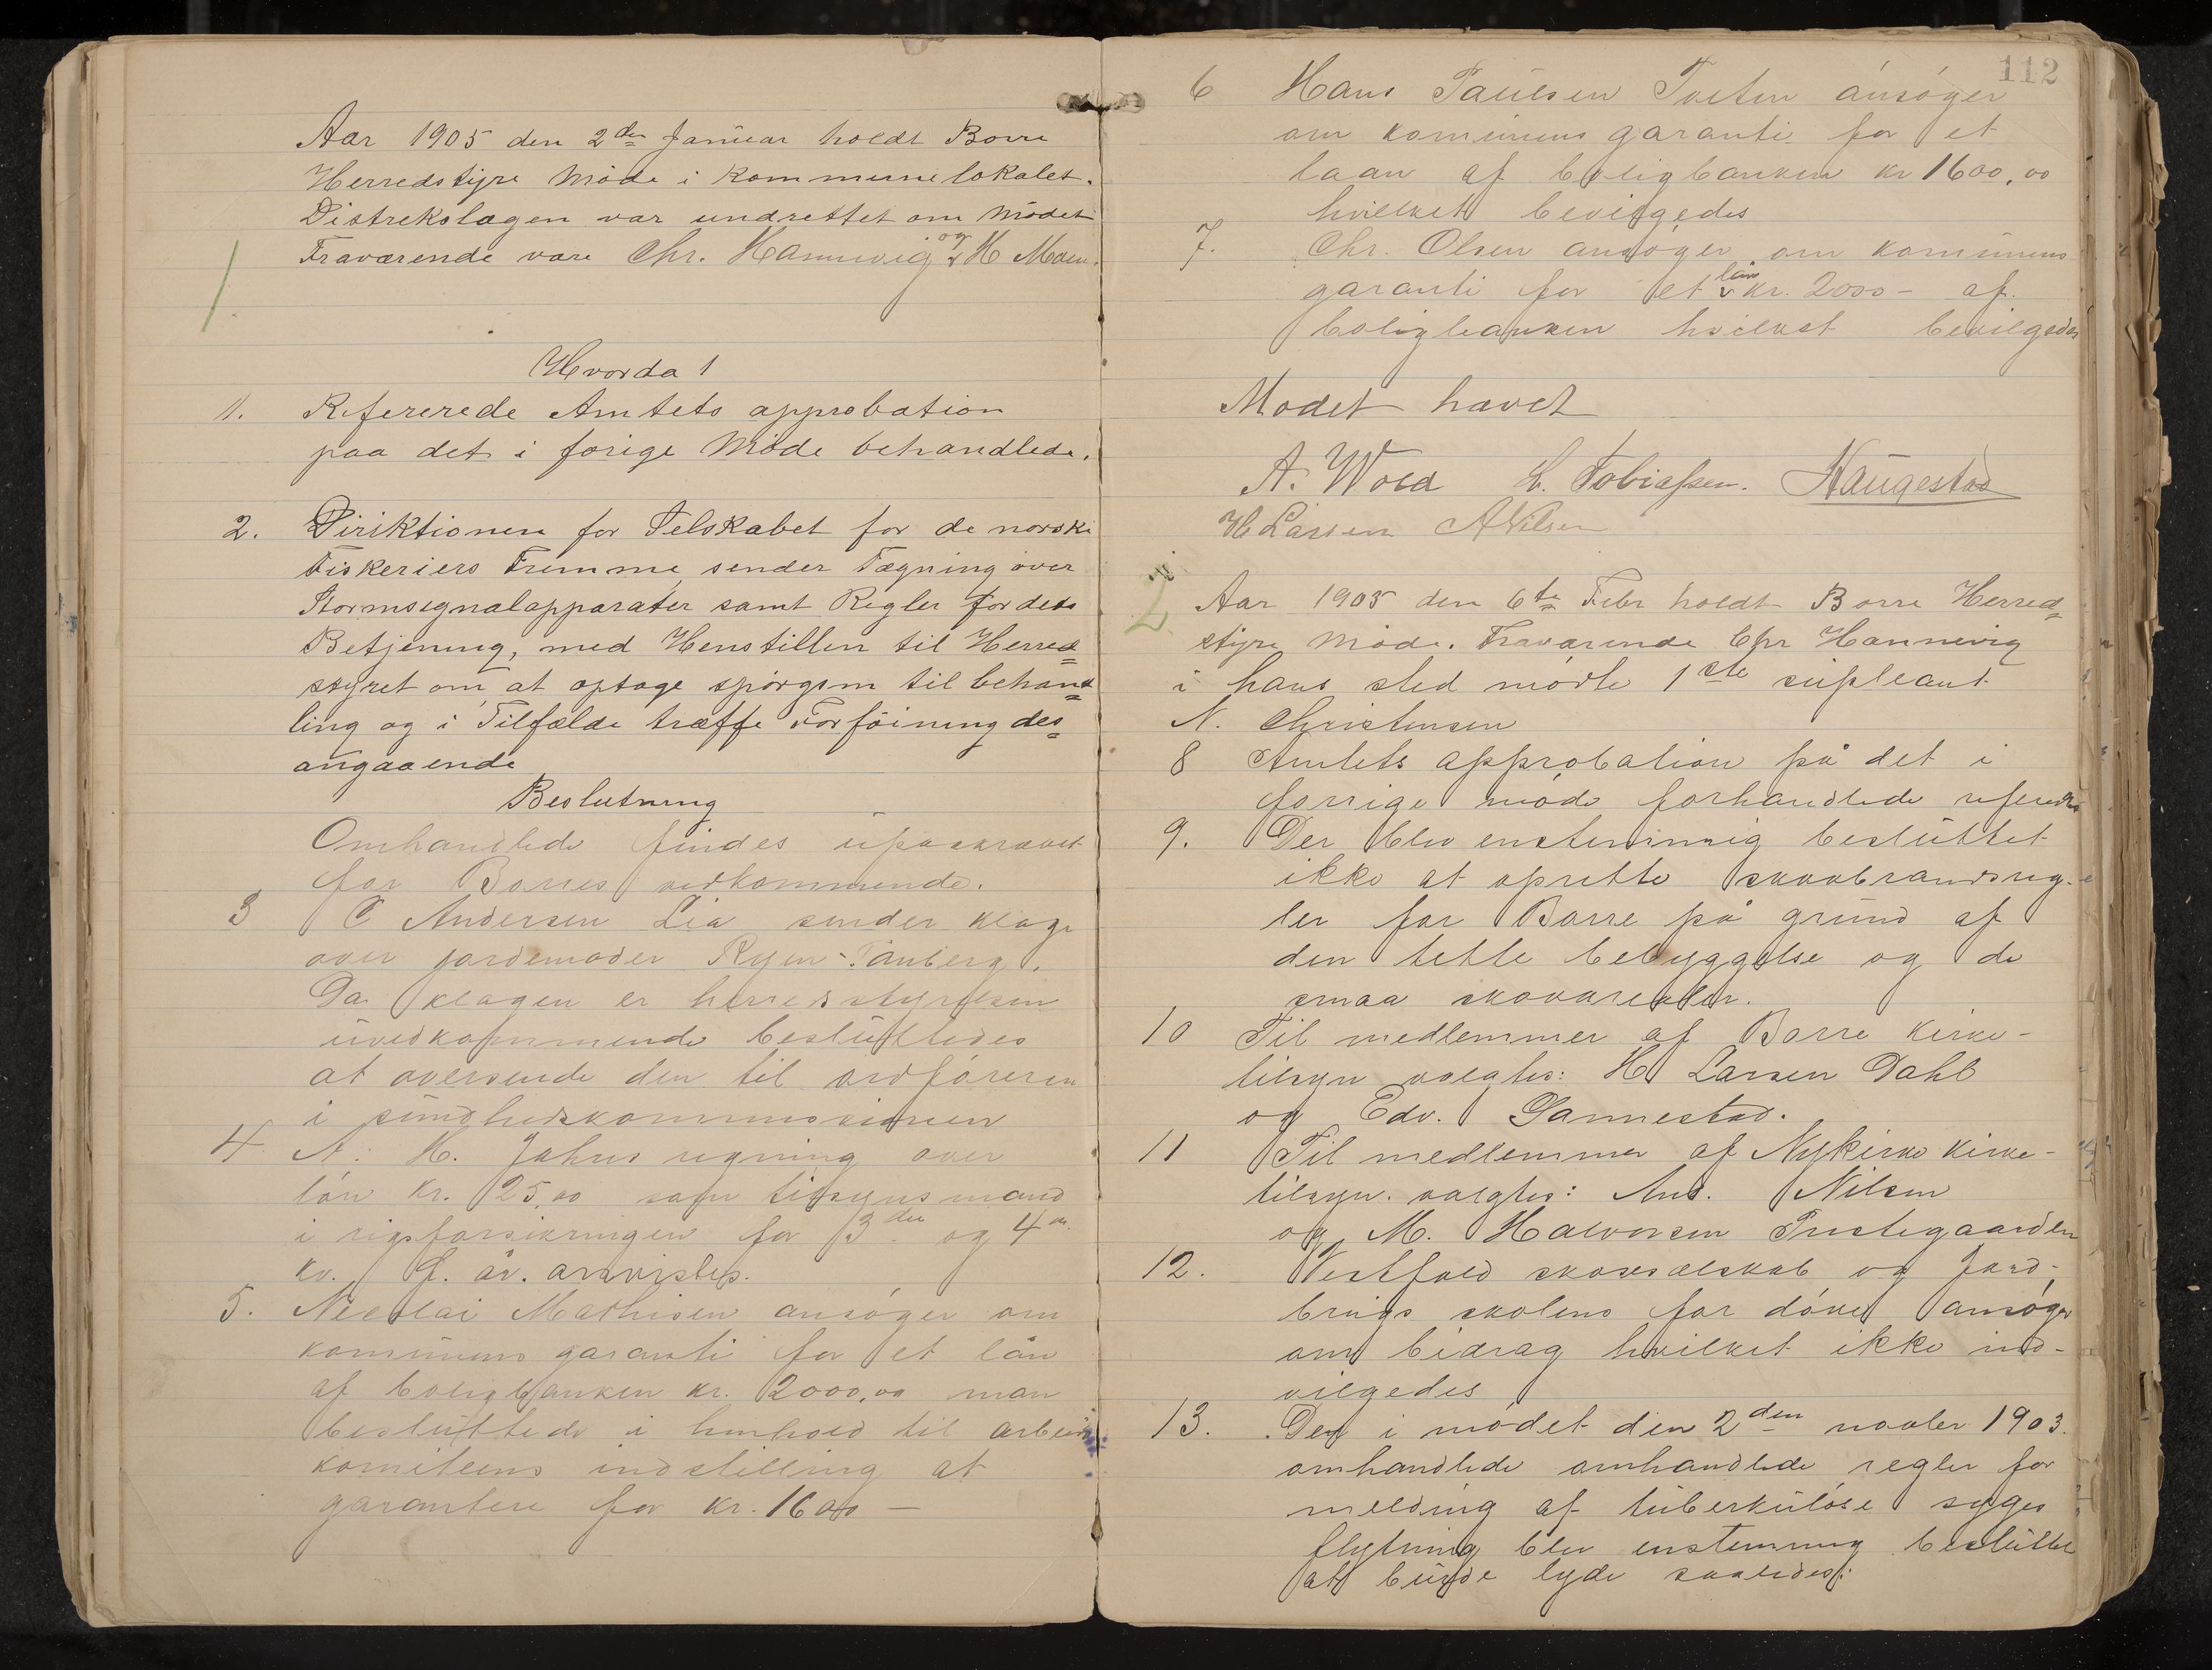 Aar 1905 den 2den Januar holdt Borre
Herredstyre Møde i Kommunelokalet.
Distrekslægen var undrettet om Mødet
Fraværende vare Chr. Hannevig og H Moen.
1.
Hvorda 1
1. Refererede Amtets approbation
paa det i forige Møde behandlede.
2. Diriktionen for Selskabet for de norske
Fiskeriers Fremme sender Tægning over
Stormsignalapparater samt Regler for dets
Betjening, med Henstillen til Herred=
styret om at optage spörgsm til behand=
ling og i Tilfælde træffe Forföining des=
angaaende
Beslutning
Omhandlede findes upaakrævet
for Borres vedkommende.
3 C Andersen Lia sender klage
over jordemoder Ryen-Tanberg.
Da klagen er herredsstyrelsen
uvedkommende besluttedes
at oversende den til ordføreren
i sundhedskommissionen
4 A. H. Jahres regning over
lön kr. 25,00 som tilsynsmand
i rigsforsikringen for 3die og 4de
kv. f. år. anvistes.
5. Nicolai Mathisen ansøger om
kommunens garanti for et lån
af boligbanken kr. 2000,00 man
besluttede i henhold til arbeids
komiteens indstilling at
garantere for kr. 1600 –
112
6 Hans Paulsen Tveten ansøger
om kommunens garanti for et
laan af boligbanken kr 1600,00
hvilket bevilgedes
7. Chr. Olsen ansøger om kommunens
garanti for et lån kr. 2000 – af
boligbanken hvilket bevilgedes
Mødet hævet
A. Wold L. Tobiassen. Haugestad
H Larsen A Nilsen
2.
Aar 1905 den 6te Febr holdt Borre Herred=
styre Møde. Fraværende Chr Hannevig
i hans sted mødte 1ste supleant
N. Christensen
8 Amtets approbation på det i
forrige møde forhandlede refereredes
9. Der blev enstemmig besluttet
ikke at oprette skovbrandsreg-
ler for Borre på grund af
den tette bebyggelse og de
smaa skovarealer.
10 Til medlemmer af Borre kirke-
tilsyn valgtes: H Larsen Dahl
og Edv. Gannestad.
11 Til medlemmer af Nykirke kirke-
tilsyn. valgtes: And. Nilsen
og M. Halvorsen Prestegaarden
12. Vestfold skovselskab og Jord-
brugs skolens for døve ansøger
om bidrag hvilket ikke ind-
vilgedes
13. Den i mødet den 2den novbr 1903.
omhandlede omhandlede regler for
melding af tuberkuløse syges
flytning blev enstemmig besluttet
at burde lyde saaledes: